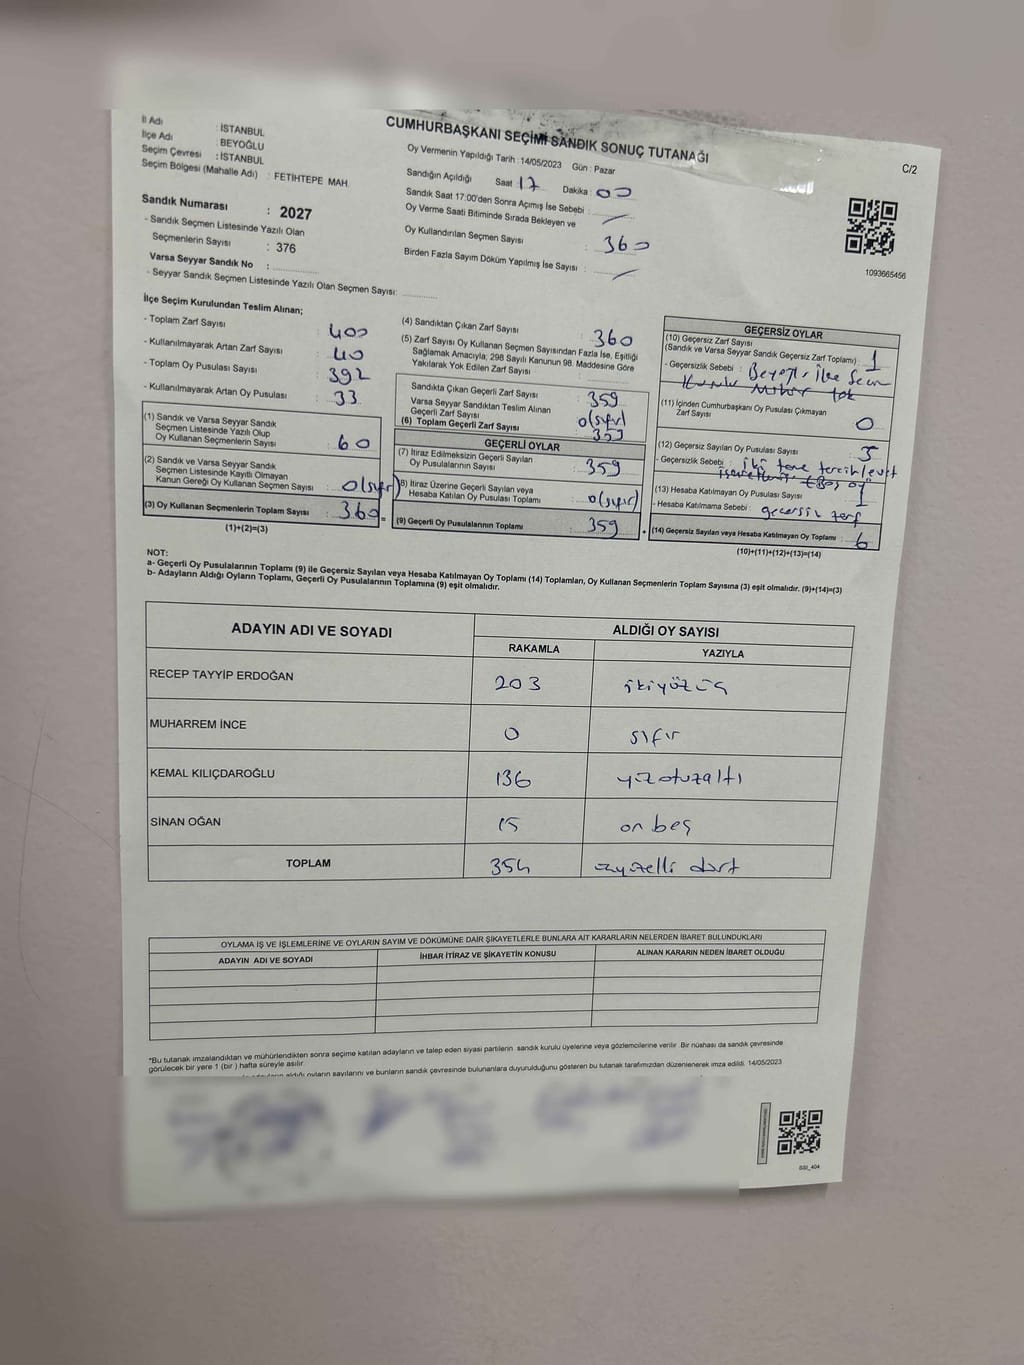 CUMHURBAŞKANI SEÇİMİ SANDIK SONUÇ TUTANAĞI
C/2
İl Adı : İSTANBUL
İlçe Adı : BEYOĞLU
Seçim Çevresi : İSTANBUL
Seçim Bölgesi (Mahalle Adı) : FETİHTEPE MAH.
Sandık Numarası : 2027
- Sandık Seçmen Listesinde Yazılı Olan
Seçmenlerin Sayısı : 376
Varsa Seyyar Sandık No :
- Seyyar Sandık Seçmen Listesinde Yazılı Olan Seçmen Sayısı:
Oy Vermenin Yapıldığı Tarih : 14/05/2023 Gün : Pazar
Sandığın Açıldığı Saat 17 Dakika : 00
Sandık Saat 17:00'den Sonra Açımış İse Sebebi :
Oy Verme Saati Bitiminde Sırada Bekleyen ve
Oy Kullandırılan Seçmen Sayısı : 360
Birden Fazla Sayım Döküm Yapılmış İse Sayısı :
1093665456
İlçe Seçim Kurulundan Teslim Alınan;
- Toplam Zarf Sayısı : 400
- Kullanılmayarak Artan Zarf Sayısı : 40
- Toplam Oy Pusulası Sayısı : 392
- Kullanılmayarak Artan Oy Pusulası : 33
(1) Sandık ve Varsa Seyyar Sandık
Seçmen Listesinde Yazılı Olup
Oy Kullanan Seçmenlerin Sayısı : 60
(2) Sandık ve Varsa Seyyar Sandık
Seçmen Listesinde Kayıtlı Olmayan
Kanun Gereği Oy Kullanan Seçmen Sayısı : 0(sıfır)
(3) Oy Kullanan Seçmenlerin Toplam Sayısı : 360
(1)+(2)=(3)
(4) Sandıktan Çıkan Zarf Sayısı : 360
(5) Zarf Sayısı Oy Kullanan Seçmen Sayısından Fazla İse, Eşitliği
Sağlamak Amacıyla; 298 Sayılı Kanunun 98. Maddesine Göre
Yakılarak Yok Edilen Zarf Sayısı :
Sandıkta Çıkan Geçerli Zarf Sayısı : 359
Varsa Seyyar Sandıktan Teslim Alınan
Geçerli Zarf Sayısı : 0(sıfır)
(6) Toplam Geçerli Zarf Sayısı : 359
GEÇERLİ OYLAR
(7) İtiraz Edilmeksizin Geçerli Sayılan
Oy Pusulalarının Sayısı : 359
(8) İtiraz Üzerine Geçerli Sayılan veya
Hesaba Katılan Oy Pusulası Toplamı : 0(sıfır)
(9) Geçerli Oy Pusulalarının Toplamı : 359
GEÇERSİZ OYLAR
(10) Geçersiz Zarf Sayısı
(Sandık ve Varsa Seyyar Sandık Geçersiz Zarf Toplamı) : 1
- Geçersizlik Sebebi : Beyoğlu ilçe Seçim
Kurulu Mühür yok
(11) İçinden Cumhurbaşkanı Oy Pusulası Çıkmayan
Zarf Sayısı : 0
(12) Geçersiz Sayılan Oy Pusulası Sayısı : 5
- Geçersizlik Sebebi : iki tane tercih/evet
(13) Hesaba Katılmayan Oy Pusulası Sayısı : 1
- Hesaba Katılmama Sebebi : geçersiz zarf
(14) Geçersiz Sayılan veya Hesaba Katılmayan Oy Toplamı : 6
(10)+(11)+(12)+(13)=(14)
NOT:
a- Geçerli Oy Pusulalarının Toplamı (9) ile Geçersiz Sayılan veya Hesaba Katılmayan Oy Toplamı (14) Toplamları, Oy Kullanan Seçmenlerin Toplam Sayısına (3) eşit olmalıdır. (9)+(14)=(3)
b- Adayların Aldığı Oyların Toplamı, Geçerli Oy Pusulalarının Toplamına (9) eşit olmalıdır.
ADAYIN ADI VE SOYADI ALDIĞI OY SAYISI
RAKAMLA YAZIYLA
RECEP TAYYİP ERDOĞAN 203 ikiyüzüç
MUHARREM İNCE 0 sıfır
KEMAL KILIÇDAROĞLU 136 yüzotuzaltı
SİNAN OĞAN 15 on beş
TOPLAM 354 üçyüzelli dört
OYLAMA İŞ VE İŞLEMLERİNE VE OYLARIN SAYIM VE DÖKÜMÜNE DAİR ŞİKAYETLERLE BUNLARA AİT KARARLARIN NELERDEN İBARET BULUNDUKLARI
ADAYIN ADI VE SOYADI İHBAR İTİRAZ VE ŞİKAYETİN KONUSU ALINAN KARARIN NEDEN İBARET OLDUĞU
*Bu tutanak imzalandıktan ve mühürlendikten sonra seçime katılan adayların ve talep eden siyasi partilerin sandık kurulu üyelerine veya gözlemcilerine verilir. Bir nüshası da sandık çevresinde
görülecek bir yere 1 (bir) hafta süreyle asılır.
aldığı oyların sayılarını ve bunların sandık çevresinde bulunanlara duyurulduğunu gösteren bu tutanak tarafımızdan düzenlenerek imza edildi. 14/05/2023
SSI_404